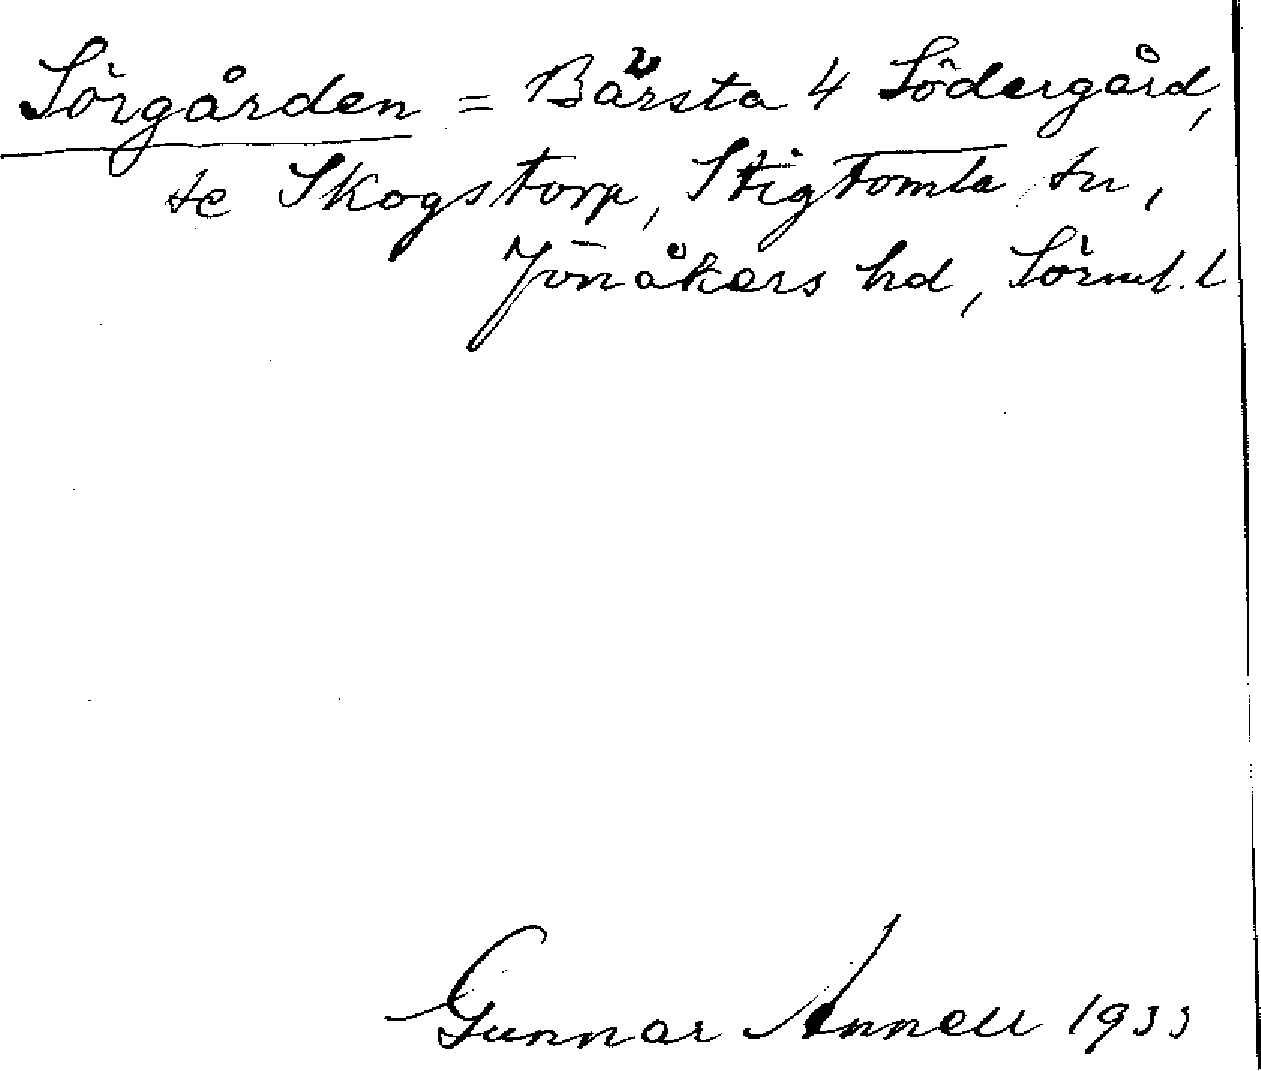 Sörgården = Bärsta 4 Södergård,
te Skogstorp, Stigtomta sn,
Jönåkers hd, Sörml. l
Gunnar Annell 1933